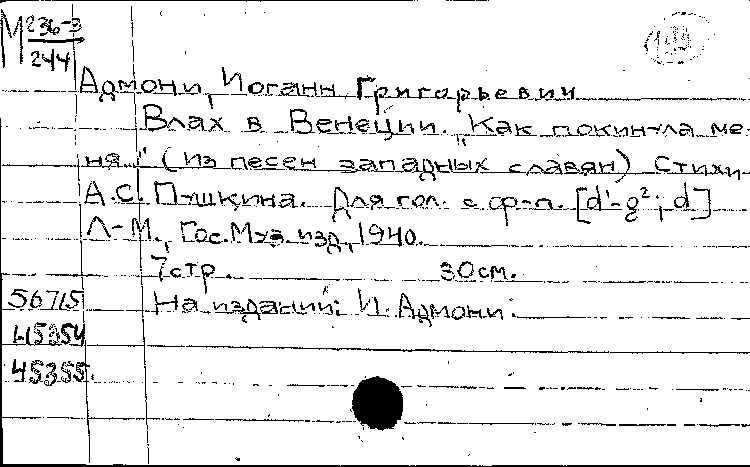 М 236-3
244
Адмони, Иоганн Григорьевич
Влах в Венеции. "Как покинула ме-
ня..." (из песен западных славян) Стихи
А.С. Пушкина. Для гол. с ф-п. [d'-g²; d]
Л-М., Гос. Муз. изд., 1940.
7 стр. 30 см.
На издании: И. Адмони.
56715
45354
45355.